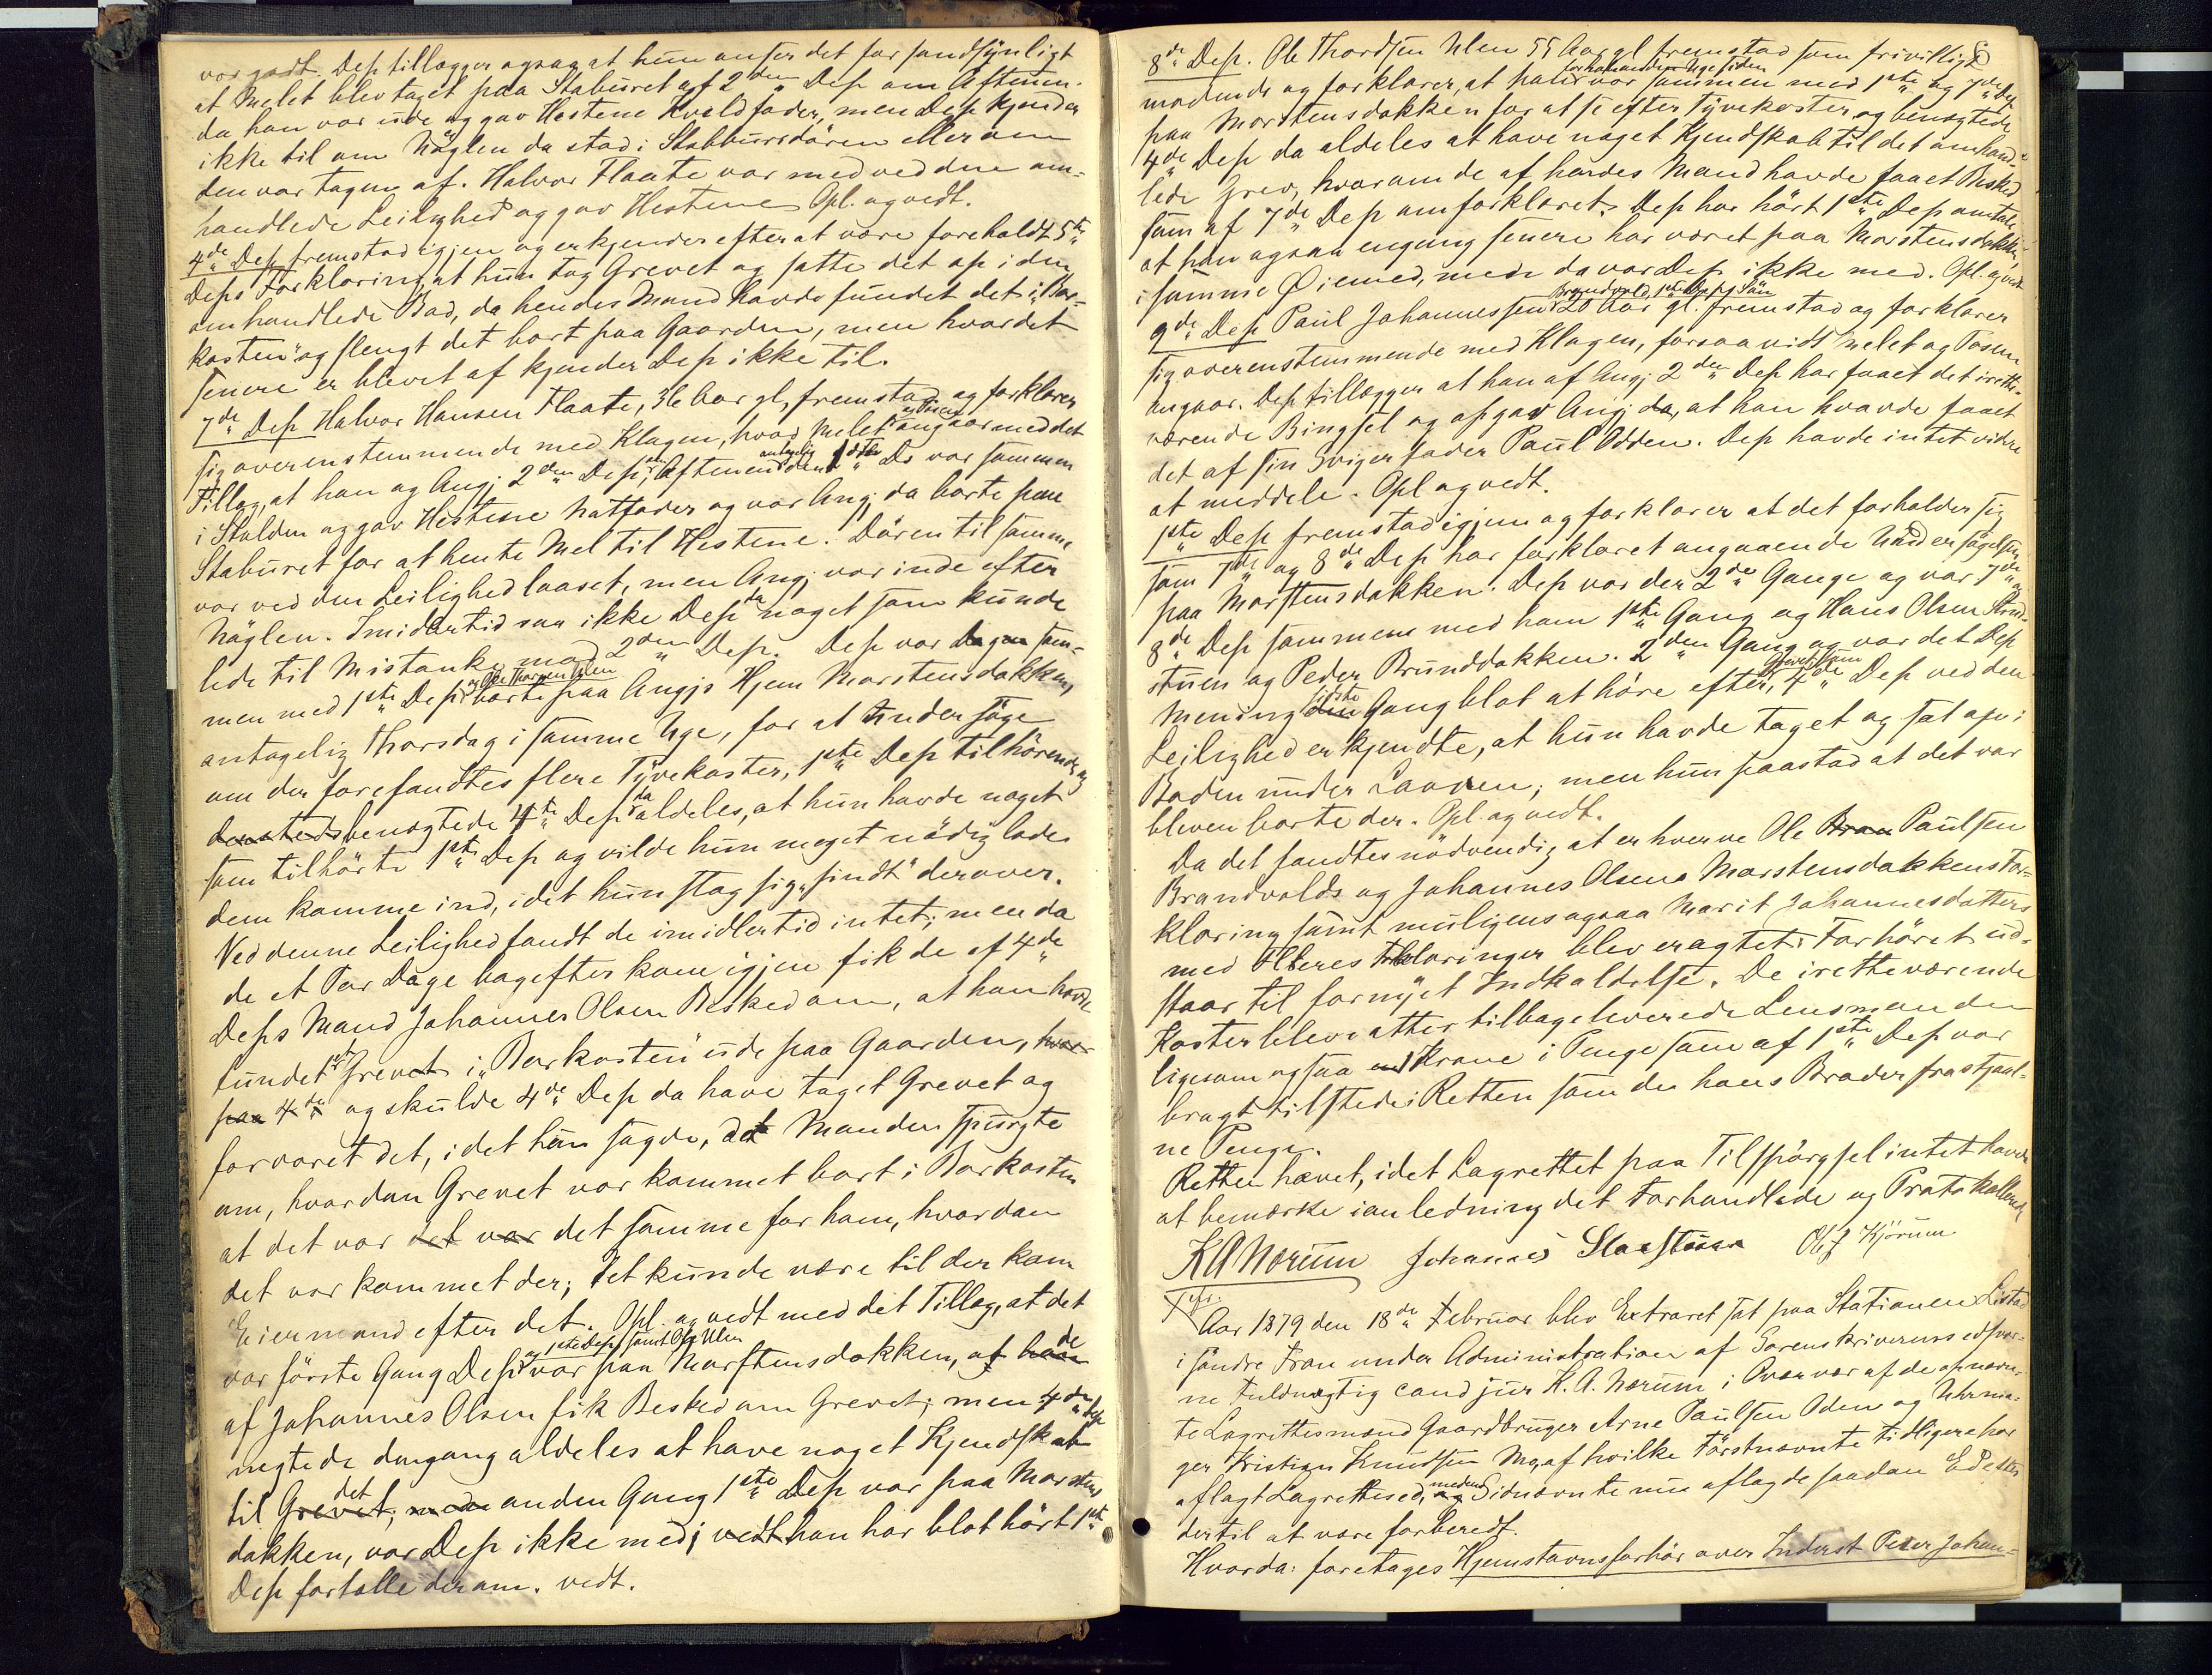 var godt. Dep tillægger ogsaa at hun anser det for sandsynligt
at Melet blev taget paa Staburet af 2den Dep om Aftenen
da han var ude og gav Hestene Kveldfoder, men Dep kjender
ikke til om Nøglen da stod i Stabbursdøren eller om
den var tagen af. Halvor Flaate var med ved den om-
handlede Leilighed og gav Hestene Opl. og vedt.
4de Dep fremstod igjen og erkjender efter at være foreholdt 5te
Deps Forklaring, at hun tog Grevet og satte det op i den
omhandlede Bod, da hendes Mand havde fundet det i "Bar-
kosten" og slengt det bort paa Gaarden, men hvor det
senere er blevet af kjender Dep ikke til.
7de Dep Halvor Hansen Flaate, 36 Aar gl, fremstod og forklarer
sig overensstemmende med Klagen, hvad Melet og Posen angaar med det
Tillæg, at han og Ang. 2den Dep, om Aftenen antagelig den 1ste Ds var sammen
i Stalden og gav Hestene Natfoder og var Ang. da borte paa
Staburet for at hente Mel til Hestene. Døren til samme
var ved den Leilighed laaset, men Ang. var inde efter
Nøglen. Imidlertid saa ikke Dep da noget som kunde
lede til Mistanke mod 2den Dep. Dep var sam-
men med 1ste Dep og Ole Thorsen Ulen borte paa Angjs Hjem Morstensdokken,
antagelig Thorsdag i samme Uge, for at undersøge
om der forefandtes flere Tyvekoster, 1ste Dep tilhørende, og
benægtede 4de Dep da aldeles, at hun havde noget
som tilhørte 1ste Dep og vilde hun meget nødig lade
dem komme ind, idet hun stog sig "sindt" derover.
Ved denne Leilighed fandt de imidlertid intet; men da
de et Par Dage bagefter kom igjen fik de af 4de
Deps Mand Johannes Olsen Besked om, at han havde
fundet et Grevet i "Barkosten" ude paa Gaarden, hvor
paa 4de og skulde 4de Dep da have taget Grevet og
forvaret det, idet han sagde, at Manden spurgte
om, hvordan Grevet var kommet bort i Barkosten
at det var det var det samme for ham, hvordan
det var kommet der; det kunde være til der kom
Eiermand efter det. Opl. og vedt med det Tillæg, at det
var første Gang Dep og 1ste Dep samt Ole Ulen var paa Morstensdokken, at de
af Johannes Olsen fik Besked om Grevet; men 4de Dep
negtede dengang aldeles at have noget Kjendskab
til det, anden Gang 1ste Dep var paa Morstens
dokken, var Dep ikke med; han har blot hørt 1ste
Dep fortælle derom. vedt.
8de Dep. Ole Thordsen Ulen 55 Aar gl fremstod som frivilligt
mødende og forklarer, at han forhenværende Uge siden var sammen med 1ste og 7de Dep
paa Morstensdokken for at se efter Tyvekoster og benægtede
4de Dep da aldeles at have noget Kjendskab til det omhand-
lede Grev, hvorom de af hendes Mand havde faaet Besked
som af 7de Dep omforklaret. Dep har hørt 1ste Dep omtale
at han ogsaa engang senere har været paa Morstensdokken
i samme Øiemed, men da var Dep ikke med. Opl. og vedt
9de Dep Paul Johannessen Brandvold, 1ste Deps Søn 20 Aar gl. fremstod og forklarer
sig overenstemmende med Klagen, forsaavidt Melet og Posen
angaar. Dep tillægger at han af Ang. 2den Dep har faaet det irette-
værende Bingsel og opgav Ang. da, at han havde faaet
det af sin Svigerfader Paul Odden. Dep havde intet videre
at meddele. Opl og vedt.
1ste Dep fremstod igjen og forklarer at det forholder sig
som 7de og 8de Dep har forklaret angaaende Undersøgelsen
paa Morstensdokken. Dep var der 2de Gange og var 7de og
8de Dep sammen med ham 1ste Gang og Hans Olsen Strand-
stuen og Peder Brunddokken 2den Gang og var det Dep
Mening sidste Gang blot at høre efter Grevet som 4de Dep ved den
Leilighed erkjendte, at hun havde taget og sat op i
Boden under Laaven; men hun paastod at det var
bleven borte der. Opl. og vedt.
Da det fandtes nødvendig at erhverve Ole Bran Paulsen
Brandvolds og Johannes Olsens Morstensdokkens For-
klaring samt muligens ogsaa Marit Johannesdatters
med Fleres Forklaringer blev eragtet: Forhøret ud-
staar til fornyet Indkaldelse. De iretteværende
Koster blev atter tilbageleverede Lensmanden
ligesom ogsaa en Krone i Penge som af 1ste Dep var
bragt tilstede i Retten som de hans Broder frastjaal-
ne Penge.
Retten hævet, idet Lagrettet paa Tilspørgsel intet havde
at bemærke i anledning det Forhandlede og Protokollerede
K A Norum Johannes Slaastuen Ole J Kjørum
Aar 1879 den 18de Februar blev Extraret sat paa Stationen Listad
i søndre Fron under Administration af Sorenskriverens edsvor-
ne Fuldmægtig cand jur K. A. Norum i Overvær af de opnævn-
te Lagrettesmænd Gaardbruger Arne Paulsen Oden og Uhrma-
ger Kristian Knudsen Mo, af hvilke Førstnævnte tidligere har
aflagt Lagrettesed, medens Sidnævnte nu aflagde saadan Ed efter
dertil at være forberedt.
Hvorda: foretages Hjemstavnsforhør over Inderst Peder Johan-